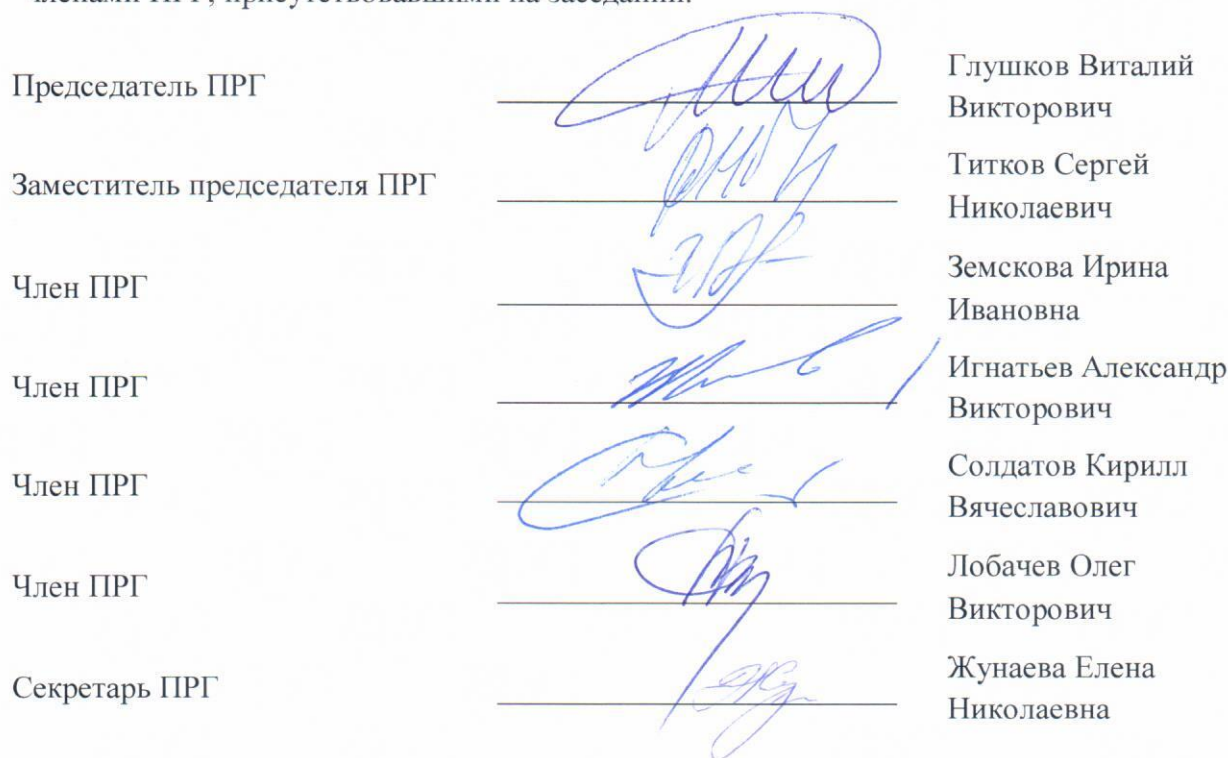 членами ПРГ, присутствовавшими на заседании.
Председатель ПРГ
Глушков Виталий
Викторович
Заместитель председателя ПРГ
Титков Сергей
Николаевич
Член ПРГ
Земскова Ирина
Ивановна
Член ПРГ
Игнатьев Александр
Викторович
Член ПРГ
Солдатов Кирилл
Вячеславович
Член ПРГ
Лобачев Олег
Викторович
Секретарь ПРГ
Жунаева Елена
Николаевна